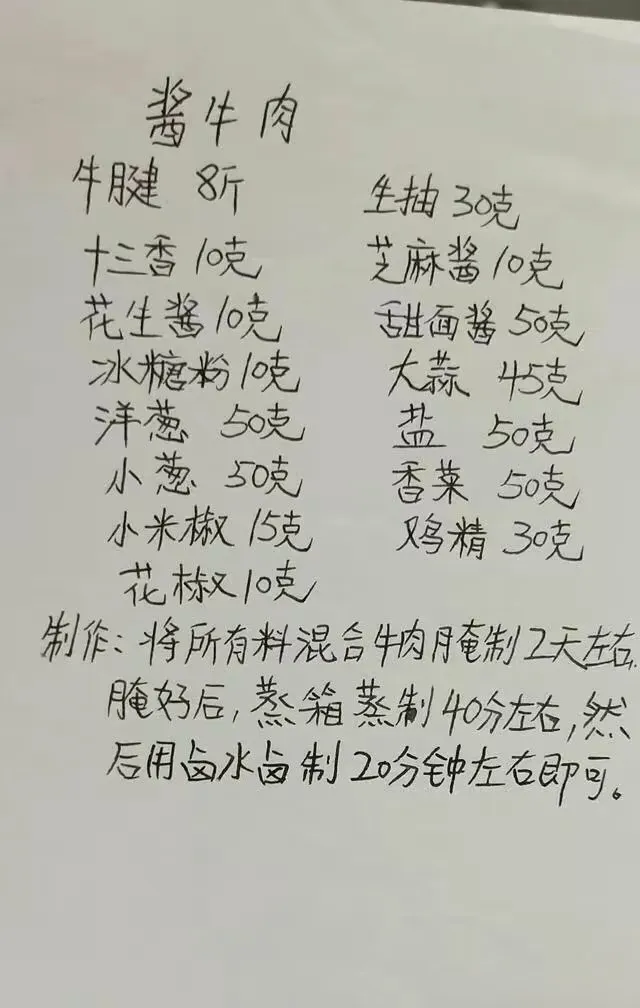 酱牛肉
牛腱 8斤 生抽 30克
十三香 10克 芝麻酱 10克
花生酱 10克 甜面酱 50克
冰糖粉 10克 大蒜 45克
洋葱 50克 盐 50克
小葱 50克 香菜 50克
小米椒 15克 鸡精 30克
花椒 10克
制作：将所有料混合牛肉腌制2天左右.
腌好后，蒸箱蒸制40分左右，然
后用卤水卤制20分钟左右即可。